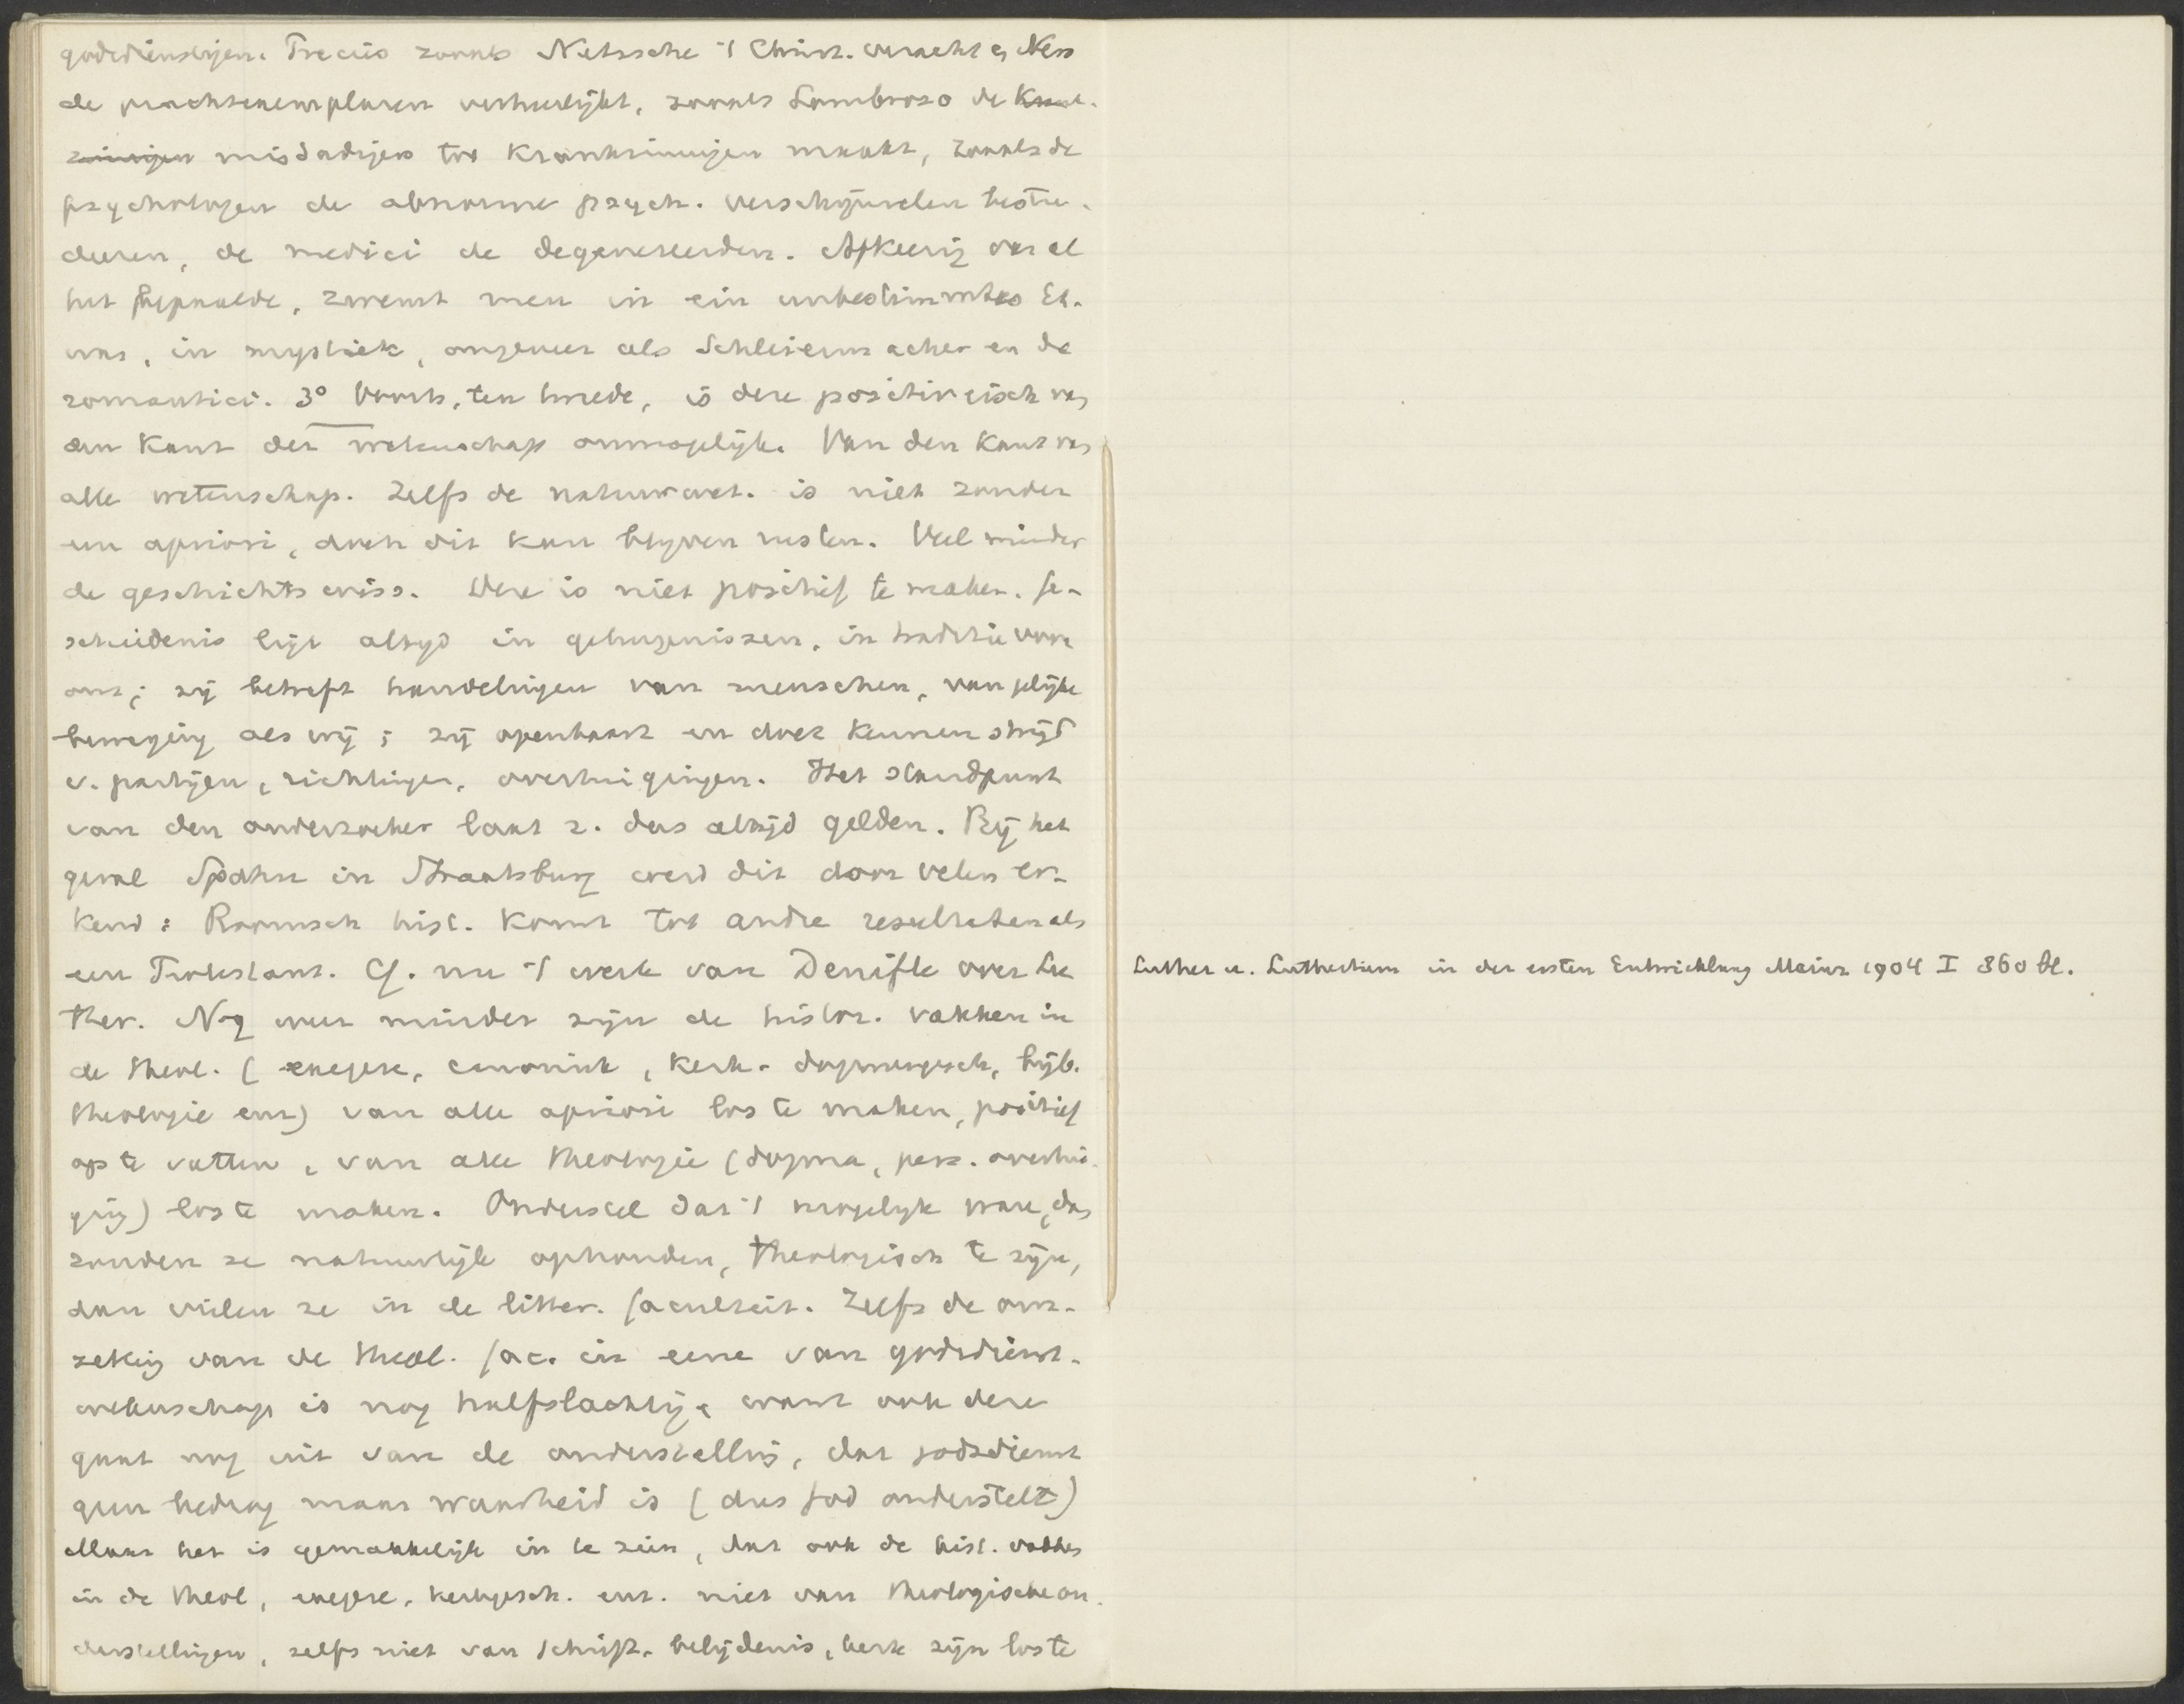 godsdienstigen. Precies zooals Nietzsche 't Christ. veracht en Ness
de prachtexemplaren verheerlijkt, zooals Lombroso de Krank-
zinnigen misdadigers tot krankzinnigen maakt, zooals de
psychologen de abnorme psych. verschijnselen bestu-
deeren, de medici de degenereerden. Afkeerig van al
het bepaalde, zwemt men in ein unbestimmtes Et-
was, in mystiek, ongeveer als Schleiermacher en de
romantici. 3° Voorts, ten tweede, is deze positiv eisch van
den kant der wetenschap onmogelijk. Van den kant van
alle wetenschap. Zelfs de natuurwet. is niet zonder
een apriori, doch dit kan blijven rusten. Veel minder
de geschichtswiss. Deze is niet positief te maken. Ge-
schiedenis ligt altijd in getuigenissen, in traditie voor
ons; zij betreft handelingen van menschen, van gelijke
beweging als wij; zij openbaart en doet kennen strijd
v. partijen, richtingen, overtuigingen. Het standpunt
van den onderzoeker laat z. dus altijd gelden. Bij het
geval Spahn in Straatsburg werd dit door velen er-
kend: Roomsch hist. komt tot andre resultaten als
een Protestant. Cf. nu 't werk van Denifle over Lu
ther. Nog veel minder zijn de histor. vakken in
de theol. (exegese, canoniek, kerk- dogmengesch, bijb.
theologie enz) van alle apriori los te maken, positief
op te vatten, van alle theologie (dogma, pers. overtui-
ging) los te maken. Onderstel dat 't mogelijk ware, dan
zouden ze natuurlijk ophouden, theologisch te zijn,
dan vielen ze in de litter. faculteit. Zelfs de om-
zetting van de theol. fac. in eene van godsdienst-
wetenschap is nog halfslachtig, want ook deze
gaat nog uit van de onderstelling, dat godsdienst
geen bedrog maar waarheid is (dus God onderstelt)
Maar het is gemakkelijk in te zien, dat ook de hist. vakken
in de theol, exegese, kerkgesch. enz. niet van theologische on-
derstellingen, zelfs niet van Schrift, belijdenis, kerk zijn los te
Luther u. Lutherthum in der ersten Entwicklung Mainz 1904 I 860 bl.